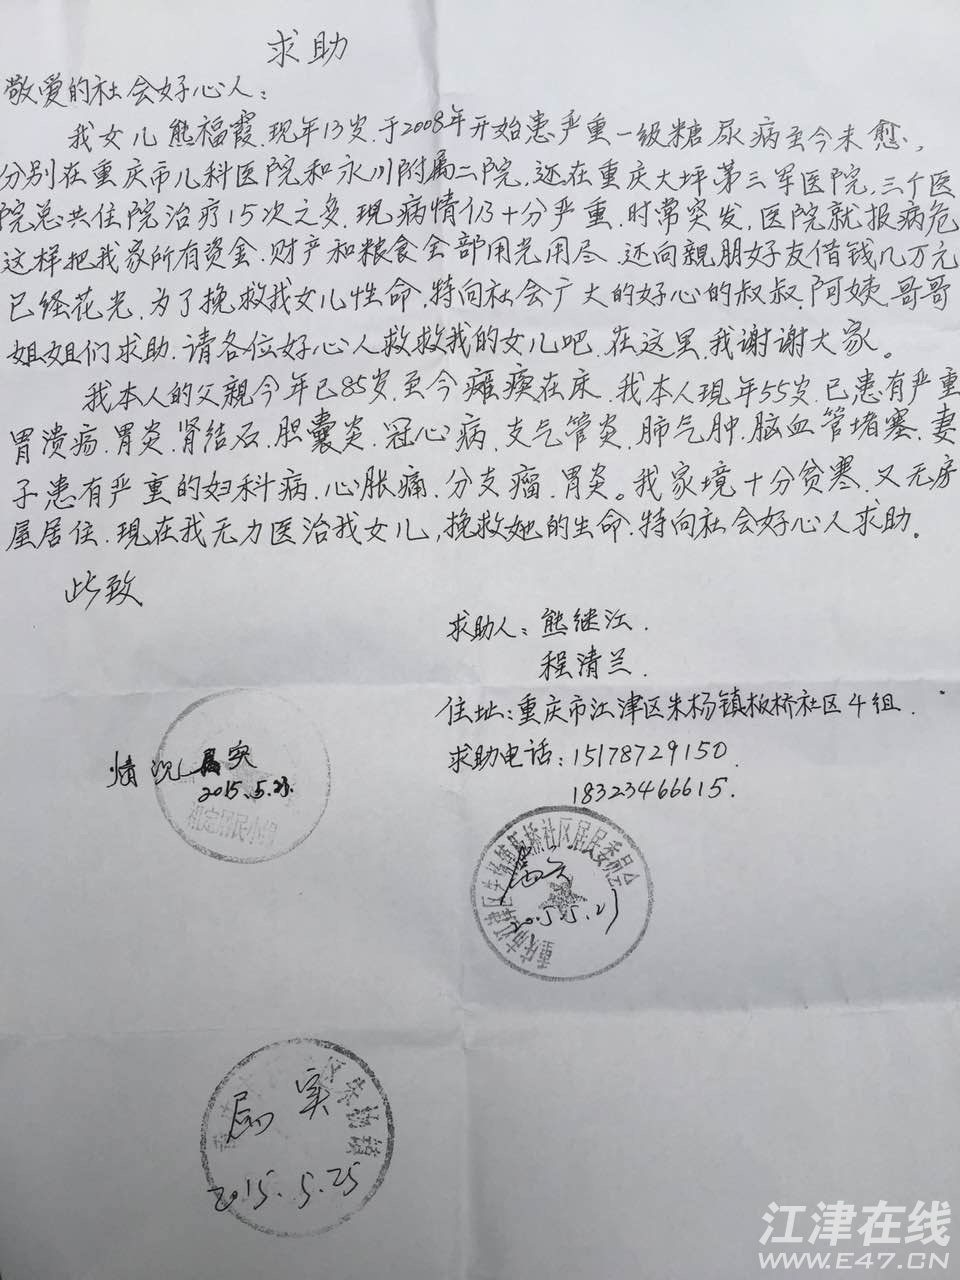 求助
敬爱的社会好心人：
我女儿熊福霞.现年13岁.于2008年开始患严重一级糖尿病至今未愈，
分别在重庆市儿科医院和永川附属二院，还在重庆大坪第三军医院，三个医
院总共住院治疗15次之多.现病情仍十分严重.时常突发，医院就报病危
这样把我家所有资金.财产和粮食全部用光用尽.还向親朋好友借钱几万元
已经花光.为了挽救我女儿性命.特向社会广大的好心的叔叔.阿姨.哥哥
姐姐们求助.请各位好心人救救我的女儿吧.在这里.我谢谢大家。
我本人的父親今年已85岁.至今瘫痪在床.我本人现年55岁.已患有严重
胃溃疡.胃炎.肾结石.胆囊炎.冠心病.支气管炎.肺气肿.脑血管堵塞.妻
子患有严重的妇科病.心胀痛.分支瘤.胃炎。我家境十分贫寒.又无房
屋居住.现在我无力医治我女儿，挽救她的生命.特向社会好心人求助。
此致
求助人：熊继江.
程清兰.
住址：重庆市江津区朱杨镇板桥社区4组.
求助电话：15178729150.
18323466615.
情况属实
2015.5.23.
居民小组
重庆市江津区朱杨镇板桥社区居民委员会
属实
2015.5.21
区朱杨镇
属实
2015.5.25
江津在线
WWW.E47.CN